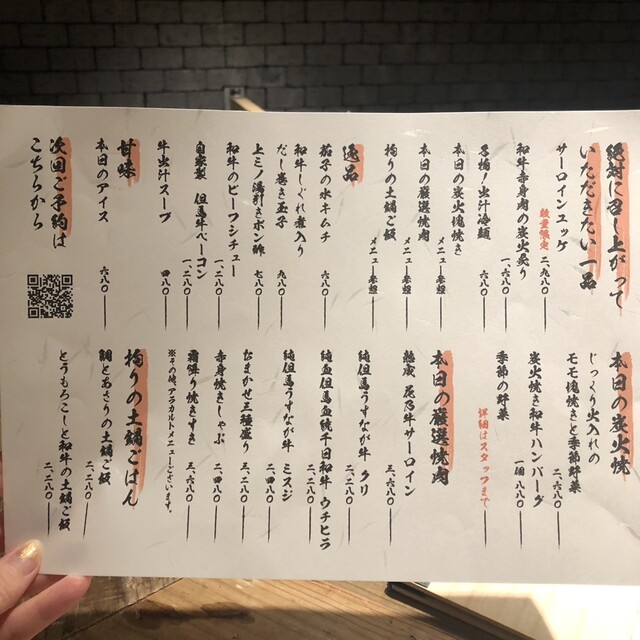 絶対に召し上がって
いただきたい一品
サーロインユッケ
数量限定 二、九八〇
和牛赤身肉の炭火炙り
一、六八〇
名物！出汁冷麺
六八〇
本日の炭火塊焼き
メニュー参照
本日の厳選焼肉
メニュー参照
拘りの土鍋ご飯
メニュー参照
逸品
茄子の水キムチ
六八〇
和牛しぐれ煮入り
だし巻き玉子
九八〇
上ミノ湯引きポン酢
七八〇
和牛のビーフシチュー
一、二八〇
自家製 但馬牛ベーコン
一、二八〇
牛出汁スープ
四八〇
甘味
本日のアイス
六八〇
次回ご予約は
こちらから
本日の炭火焼
じっくり火入れの
モモ塊焼きと季節野菜
二、六八〇
炭火焼き和牛ハンバーグ
一個 八八〇
季節の野菜
詳細はスタッフまで
本日の厳選焼肉
熟成 花乃牛サーロイン
三、六八〇
純但馬うすなが牛 クリ
二、二八〇
純血但馬血統千日和牛 ウチヒラ
二、二八〇
純但馬うすなが牛 ミスジ
二、四八〇
おまかせ三種盛り
三、二八〇
赤身焼きしゃぶ
二、四八〇
霜降り焼きすき
三、六八〇
※その他、アラカルトメニューございます。
拘りの土鍋ごはん
鯛とあさりの土鍋ご飯
二、二八〇
とうもろこしと和牛の土鍋ご飯
二、二八〇